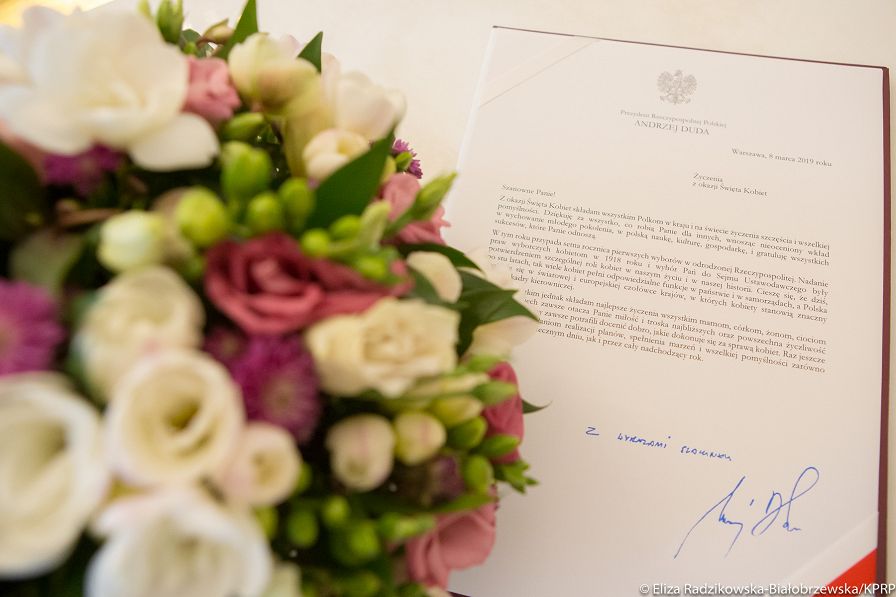 Prezydent Rzeczypospolitej Polskiej
ANDRZEJ DUDA
Warszawa, 8 marca 2019 roku
Życzenia
z okazji Święta Kobiet
Szanowne Panie!
Z okazji Święta Kobiet składam wszystkim Polkom w kraju i na świecie życzenia szczęścia i wszelkiej
pomyślności. Dziękuję za wszystko, co robią Panie dla innych, wnosząc nieoceniony wkład
w wychowanie młodego pokolenia, w polską naukę, kulturę, gospodarkę, i gratuluję wszystkich
sukcesów, które Panie odnoszą.
W tym roku przypada setna rocznica pierwszych wyborów w odrodzonej Rzeczypospolitej. Nadanie
praw wyborczych kobietom w 1918 roku i wybór Pań do Sejmu Ustawodawczego były
potwierdzeniem szczególnej roli kobiet w naszym życiu i w naszej historii. Cieszę się, że dziś,
po stu latach, tak wiele kobiet pełni odpowiedzialne funkcje w państwie i w samorządach, a Polska
się w światowej i europejskiej czołówce krajów, w których kobiety stanowią znaczny
kadry kierowniczej.
jednak składam najlepsze życzenia wszystkim mamom, córkom, żonom, ciociom
zawsze otacza Panie miłość i troska najbliższych oraz powszechna życzliwość
zawsze potrafili docenić dobro, jakie dokonuje się za sprawą kobiet. Raz jeszcze
realizacji planów, spełnienia marzeń i wszelkiej pomyślności zarówno
dniu, jak i przez cały nadchodzący rok.
Z WYRAZAMI SZACUNKU
© Eliza Radzikowska-Białobrzewska/KPRP